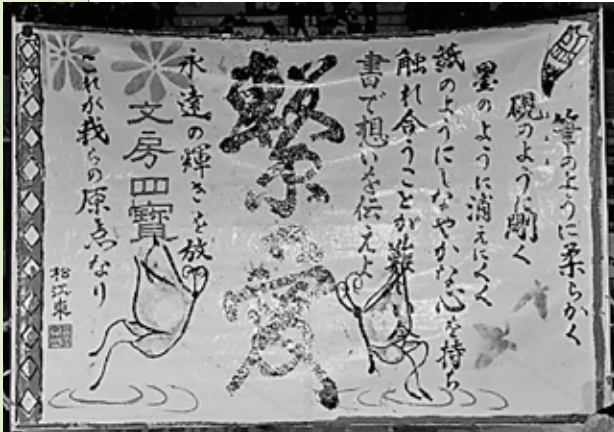 筆のように柔らかく
硯のように剛く
墨のように消えにくく
紙のようにしなやかな心を持ち
触れ合うことが難しい今
書で想いを伝えよ
繋
永遠の輝きを放つ
文房四寳
これが我らの原点なり
松江東